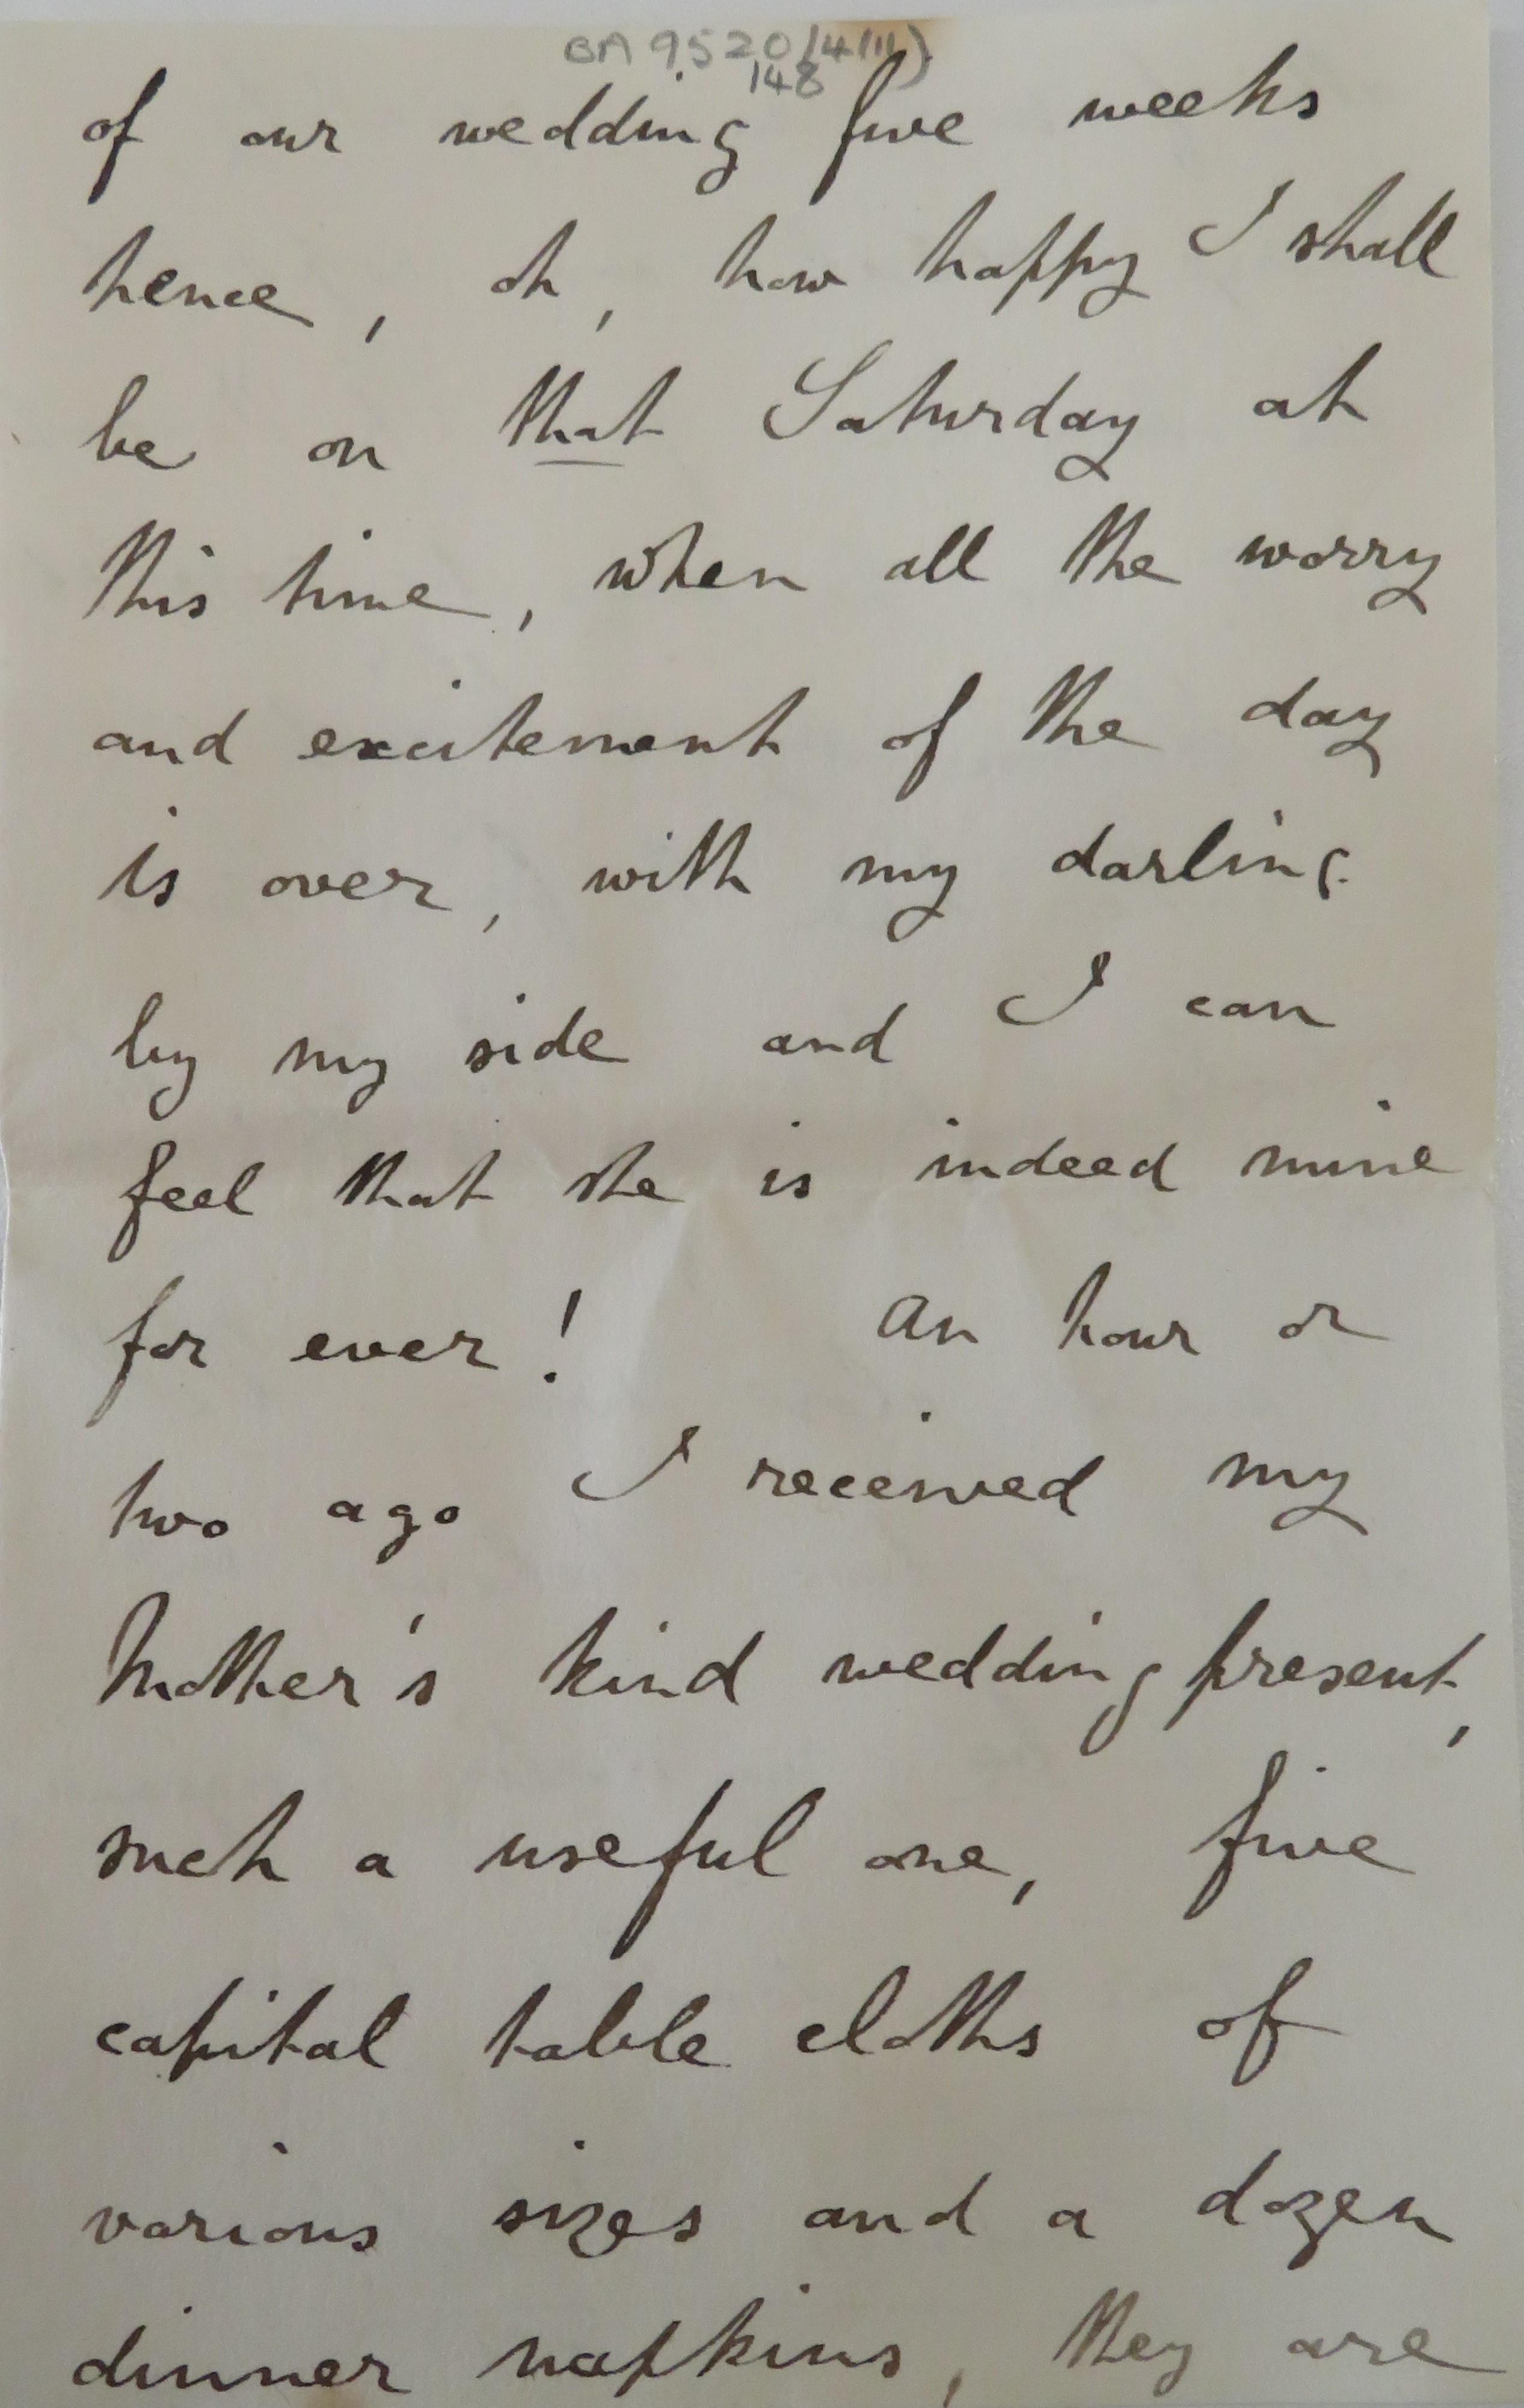 BA 9520/4(111)
148
of our wedding five weeks
hence, oh, how happy I shall
be on that Saturday at
this time, when all the worry
and excitement of the day
is over, with my darling
by my side and I can
feel that she is indeed mine
for ever! An hour or
two ago I received my
Mother's kind wedding present,
such a useful one, five
capital table cloths of
various sizes and a dozen
dinner napkins, they are